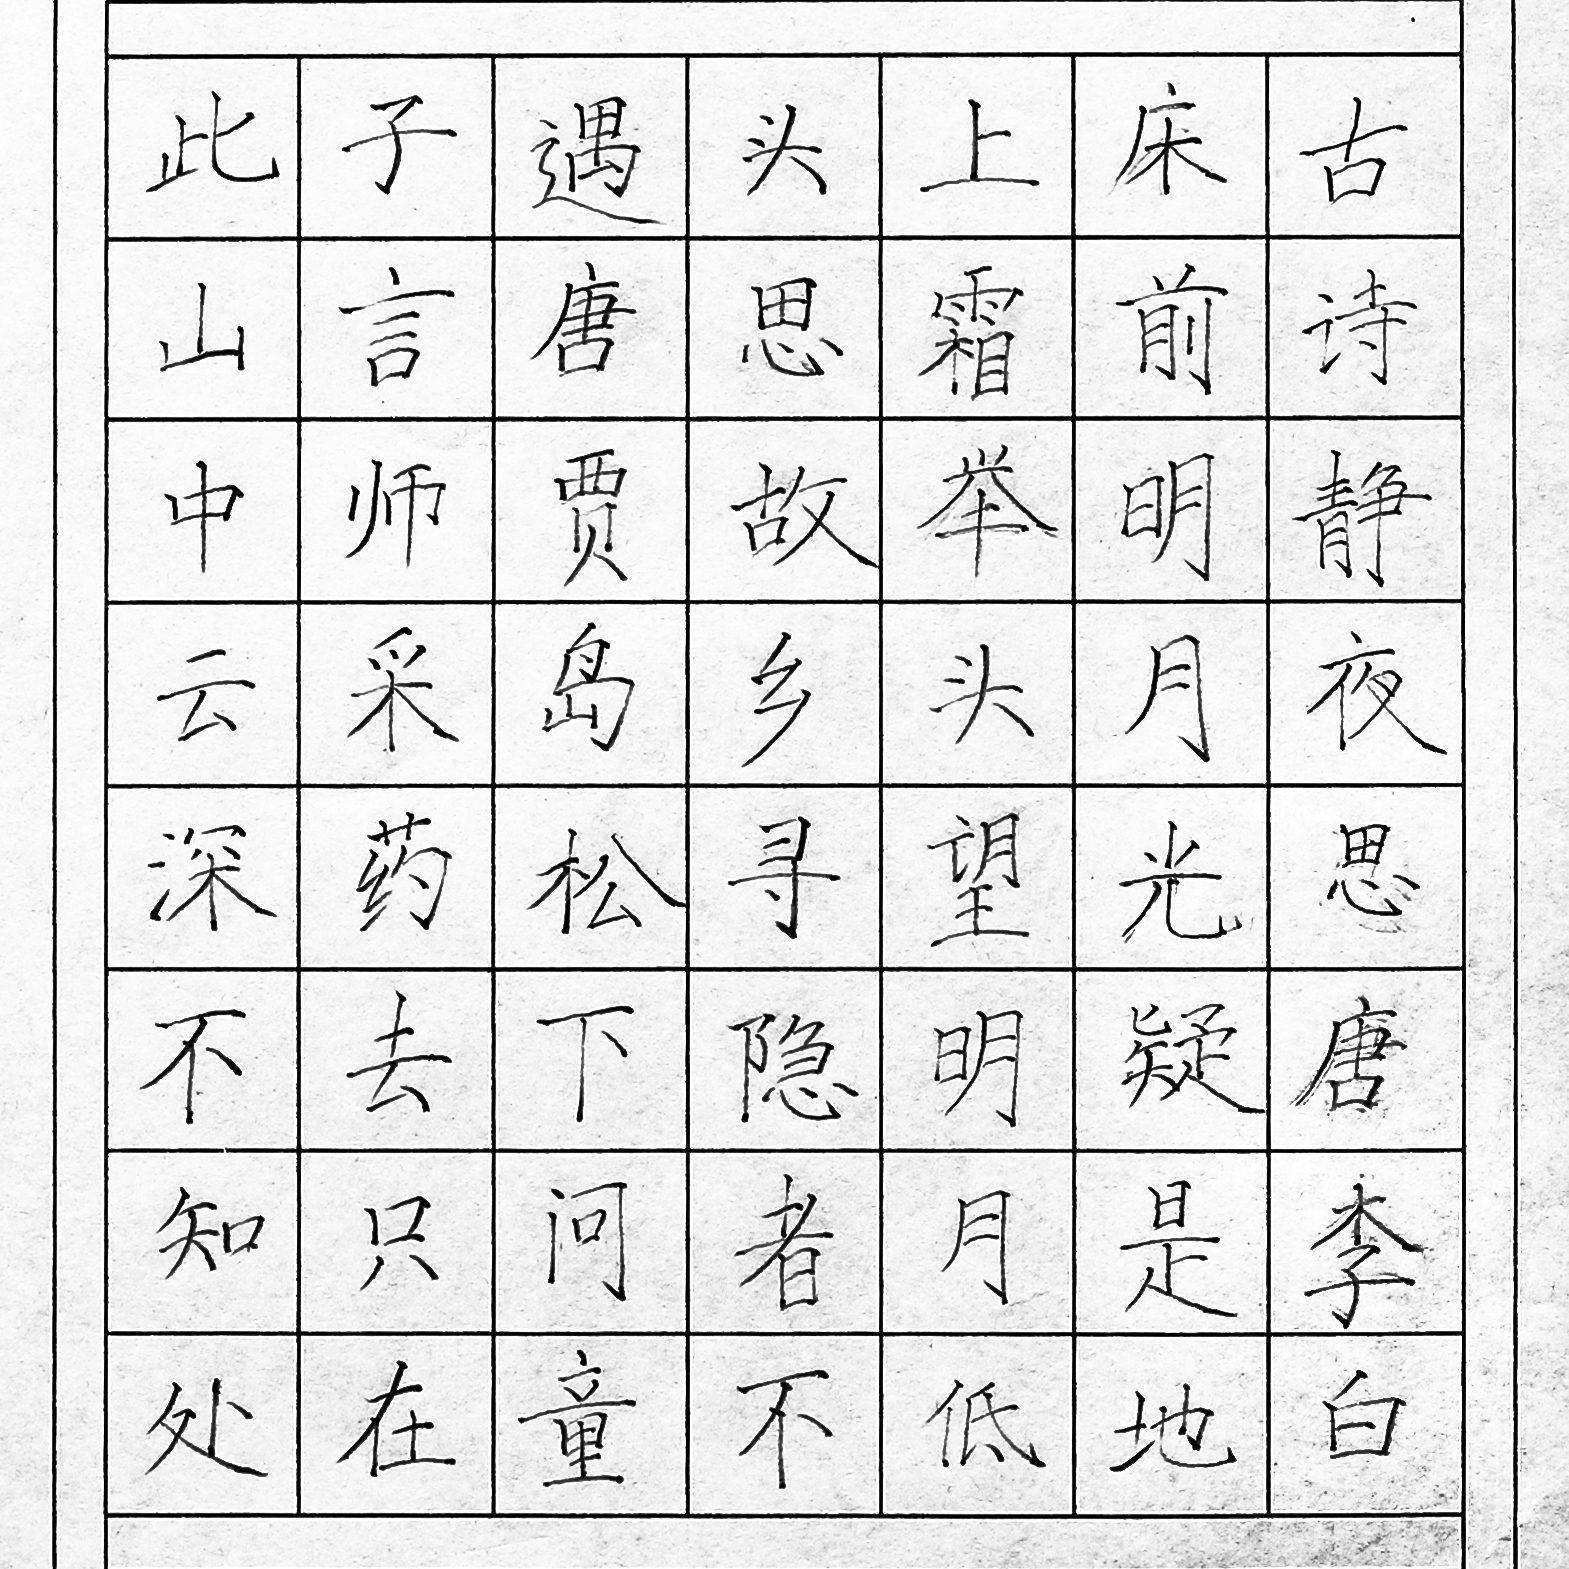 古诗静夜思唐李白
床前明月光疑是地
上霜举头望明月低
头思故乡寻隐者不
遇唐贾岛松下问童
子言师采药去只在
此山中云深不知处